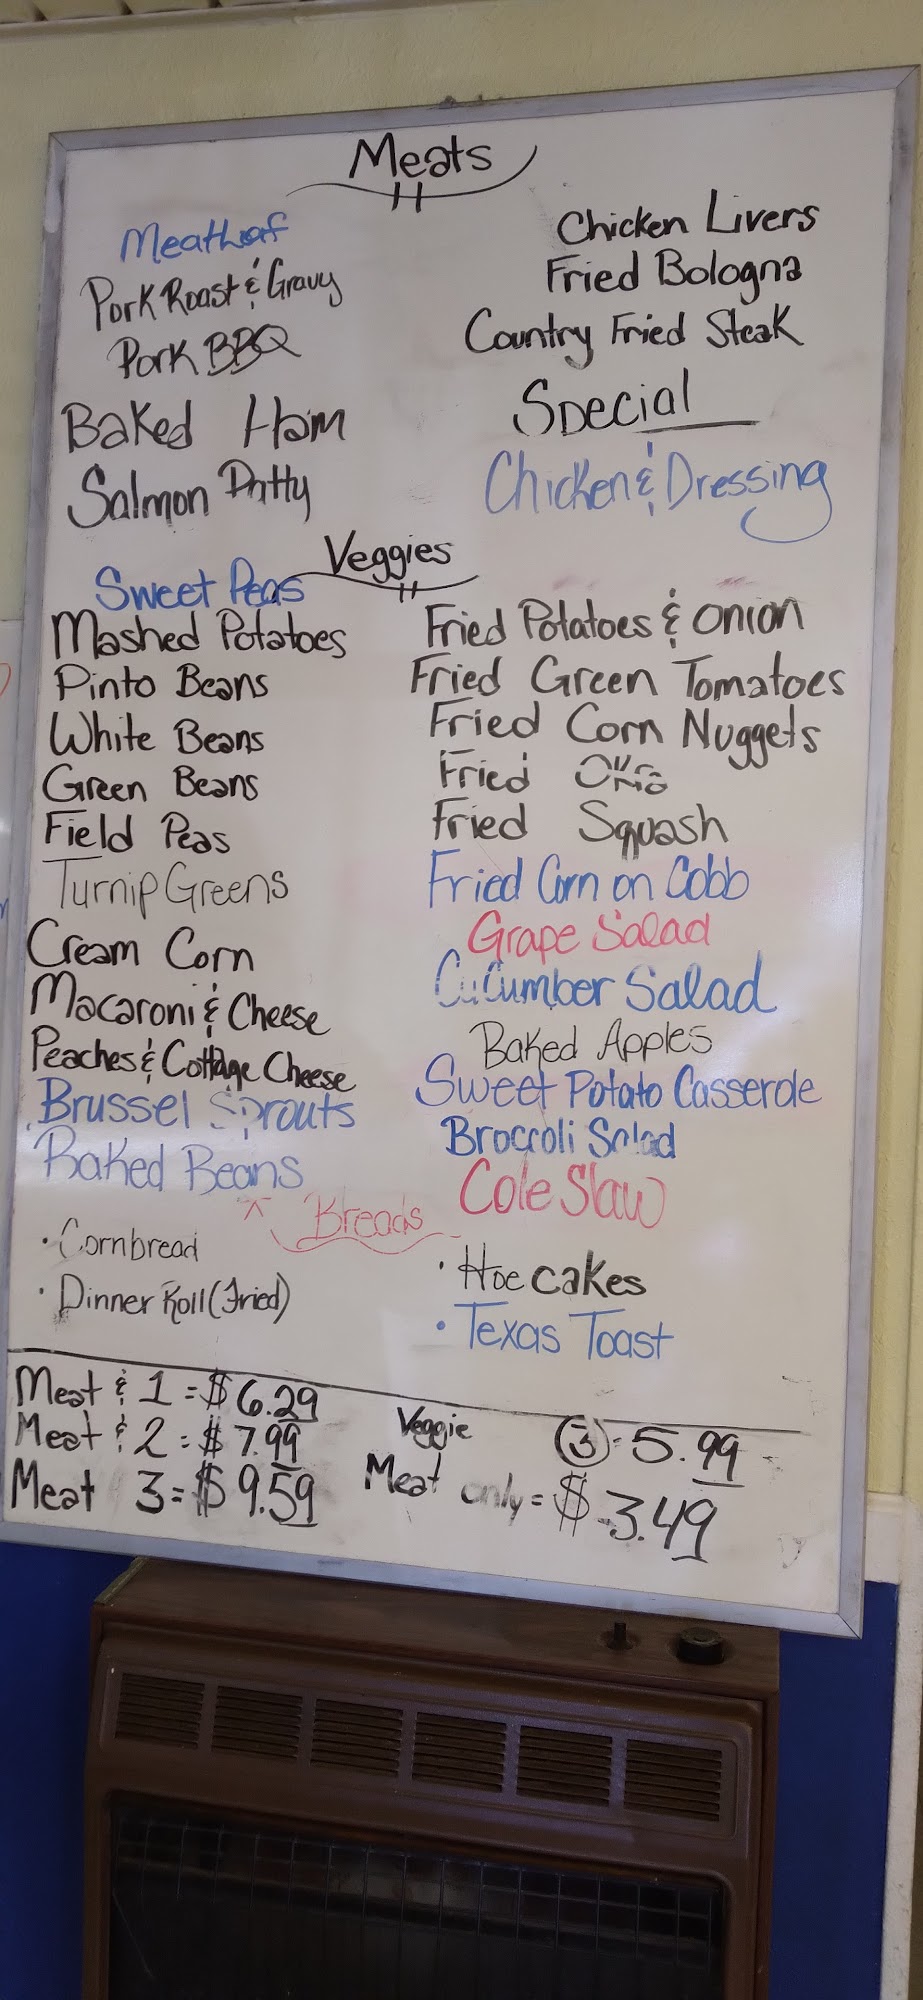 Meats
Meatloaf
Pork Roast & Gravy
Pork BBQ
Baked Ham
Salmon Patty
Chicken Livers
Fried Bologna
Country Fried Steak
Special
Chicken & Dressing
Veggies
Sweet Peas
Mashed Potatoes
Pinto Beans
White Beans
Green Beans
Field Peas
Turnip Greens
Cream Corn
Macaroni & Cheese
Peaches & Cottage Cheese
Brussel Sprouts
Baked Beans
Fried Potatoes & Onion
Fried Green Tomatoes
Fried Corn Nuggets
Fried Okra
Fried Squash
Fried Corn on Cobb
Grape Salad
Cucumber Salad
Baked Apples
Sweet Potato Casserole
Broccoli Salad
Cole Slaw
Breads
· Cornbread
· Dinner Roll (Fried)
· Hoe cakes
· Texas Toast
Meat & 1 = $6.29
Meat & 2 = $7.99
Meat 3 = $9.59
Veggie (3) = 5.99
Meat only = $3.49